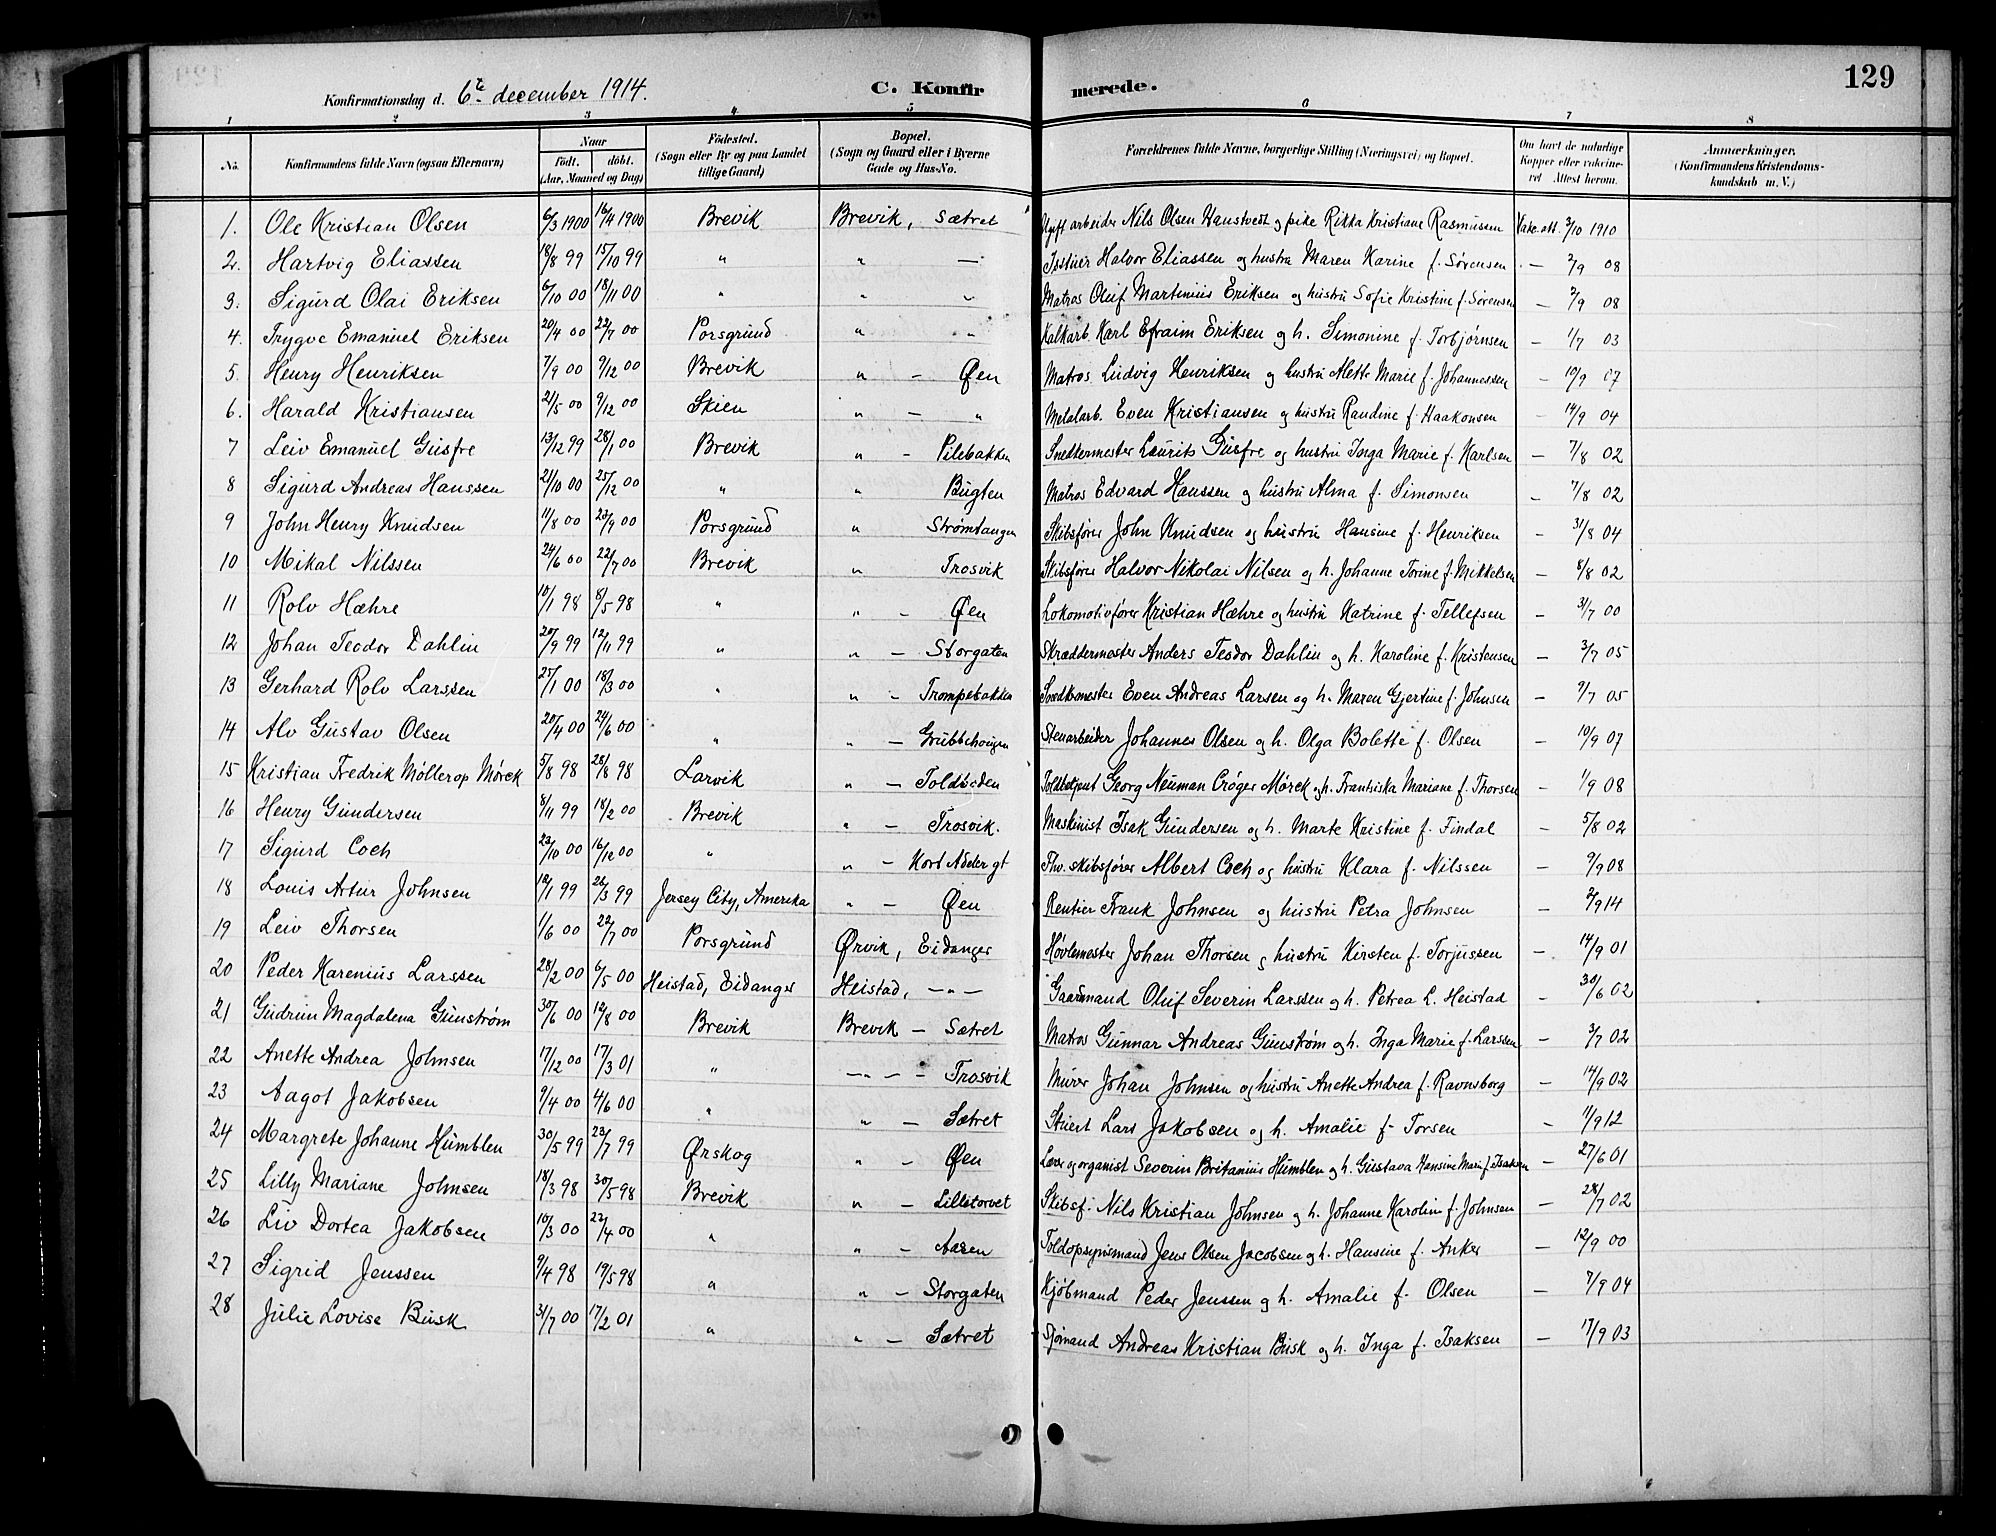 129
Konfirmationsdag d. 6te december 1914. C. Konfirmerede.
1 2 3 4 5 6 7 8
No. Konfirmandens fulde Navn (ogsaa Efternavn) Naar født. døbt. (Aar, Maaned og Dag) Fødested. (Sogn eller By og paa Landet tillige Gaard) Bopæl. (Sogn og Gaard eller i Byerne Gade og Hus-No. Forældrenes fulde Navne, borgerlige Stilling (Næringsvei) og Bopæl. Om havt de naturlige Kopper eller vaccineret Attest herom. Anmærkninger. (Konfirmandens Kristendomskundskab m. V.)
1. Ole Kristian Olsen 6/3 1900 16/4 1900 Brevik Brevik, Sætret Ugift arbeider Nils Olsen Hanstvedt og pike Rikka Kristiane Rasmussen Vakc. att. 3/10 1910
2. Hartvig Eliassen 18/8 99 15/10 99 " " — Isstuer Halvor Eliassen og hustru Maren Karine f. Sørensen — 2/9 08
3. Sigurd Olai Eriksen 6/10 00 18/11 00 " " " Matros Oluf Martinius Eriksen og hustru Sofie Kristine f. Sørensen — 2/9 08
4. Trygve Emanuel Eriksen 20/4 00 22/7 00 Porsgrund " " Kalkarb. Karl Efraim Eriksen og h. Simonine f. Torbjørnsen — 1/7 03
5. Henry Henriksen 7/9 00 9/12 00 Brevik " — Øen Matros Ludvig Henriksen og hustru Alette Marie f. Johannessen — 10/9 07
6. Harald Kristiansen 21/5 00 9/12 00 Skien " — " Metalarb. Even Kristiansen og hustru Randine f. Haakonsen — 14/9 04
7 Leiv Emanuel Gusfre 13/12 99 28/1 00 Brevik " — Pilebakken Snedkermester Laurits Gusfre og hustru Inga Marie f. Karlsen — 7/8 02
8 Sigurd Andreas Hanssen 21/10 00 25/12 00 " " Bugten Matros Edvard Hanssen og hustru Alma f. Simonsen — 7/8 02
9 John Henry Knudsen 11/8 00 23/9 00 Porsgrund " Strømtangen Skibsfører John Knudsen og hustru Hansine f. Henriksen — 31/8 04
10 Mikal Nilssen 24/6 00 22/7 00 Brevik " Trosvik Skibsfører Halvor Nikolai Nilsen og h. Johanne Torine f. Mikkelsen — 8/8 02
11 Rolv Hæhre 10/1 98 8/5 98 " " — Øen Lokomotivfører Kristian Hæhre og hustru Katrine f. Tellefsen — 3/7 00
12 Johan Teodor Dahlin 20/9 99 12/11 99 " " — Storgaten Skræddermester Anders Teodor Dahlin og h. Karoline f. Kristensen — 3/7 05
13 Gerhard Rolv Larssen 25/1 00 18/3 00 " " — Trompebakken Snedkermester Even Andreas Larsen og h. Maren Gjertine f. Johnsen — 9/7 05
14 Alv Gustav Olsen 20/4 00 24/6 00 " " — Grubbehougen Stenarbeider Johannes Olsen og h. Olga Bolette f. Olsen — 10/9 07
15 Kristian Fredrik Møllerop Mørck 5/8 98 28/8 98 Larvik " — Toldboden Toldbetjent Georg Neuman Crøger Mørck og h. Frantsiska Mariane f. Thorsen — 1/9 08
16 Henry Gundersen 8/11 99 18/2 00 Brevik " — Trosvik. Maskinist Isak Gundersen og h. Marte Kristine f. Findal — 5/8 02
17 Sigurd Coch 23/10 00 16/12 00 " " — Kort Adeler gt Fhv. skibsfører Albert Coch og hustru Klara f. Nilssen — 9/9 08
18 Louis Artur Johnsen 12/1 99 26/3 99 Jersey City, Amerika " — Øen Rentier Frank Johnsen og hustru Petra Johnsen — 2/9 14
19 Leiv Thorsen 1/6 00 22/7 00 Porsgrund Ørvik, Eidanger Høvlemester Johan Thorsen og hustru Kirsten f. Torjussen — 14/9 01
20 Peder Karenius Larssen 28/2 00 6/5 00 Heistad, Eidanger Heistad, — " — Gaardmand Oluf Severin Larssen og h. Petrea L. Heistad — 30/6 02
21 Gudrun Magdalena Gunstrøm 30/6 00 12/8 00 Brevik Brevik — Sætret Matros Gunnar Andreas Gunstrøm og h. Inga Marie f. Larssen — 3/7 02
22 Anette Andrea Johnsen 17/12 00 17/3 01 " — " — Trosvik Murer Johan Johnsen og hustru Anette Andrea f. Ravnsborg — 14/9 02
23 Aagot Jakobsen 9/4 00 4/6 00 " " — Sætret Stuert Lars Jakobsen og h. Amalie f. Torsen — 11/9 12
24 Margrete Johanne Humblen 30/5 99 23/7 99 Ørskog " — Øen Lærer og organist Severin Britanius Humblen og h. Gustava Hansine Marie f. Isaksen — 27/6 01
25 Lilly Mariane Johnsen 18/3 98 30/5 98 Brevik " — Lilletorvet Skibsf. Nils Kristian Johnsen og h. Johanne Karoline f. Johnsen — 28/7 02
26 Liv Dortea Jakobsen 10/3 00 22/4 00 " " — Aasen Toldopsynsmand Jens Olsen Jacobsen og h. Hansine f. Anker — 12/9 00
27 Sigrid Jenssen 9/4 98 19/5 98 " " — Storgaten Kjøbmand Peder Jenssen og h. Amalie f. Olsen — 7/9 04
28 Julie Lovise Busk 31/7 00 17/2 01 " " — Sætret Sjømand Andreas Kristian Busk og h. Inga f. Isaksen — 17/9 03